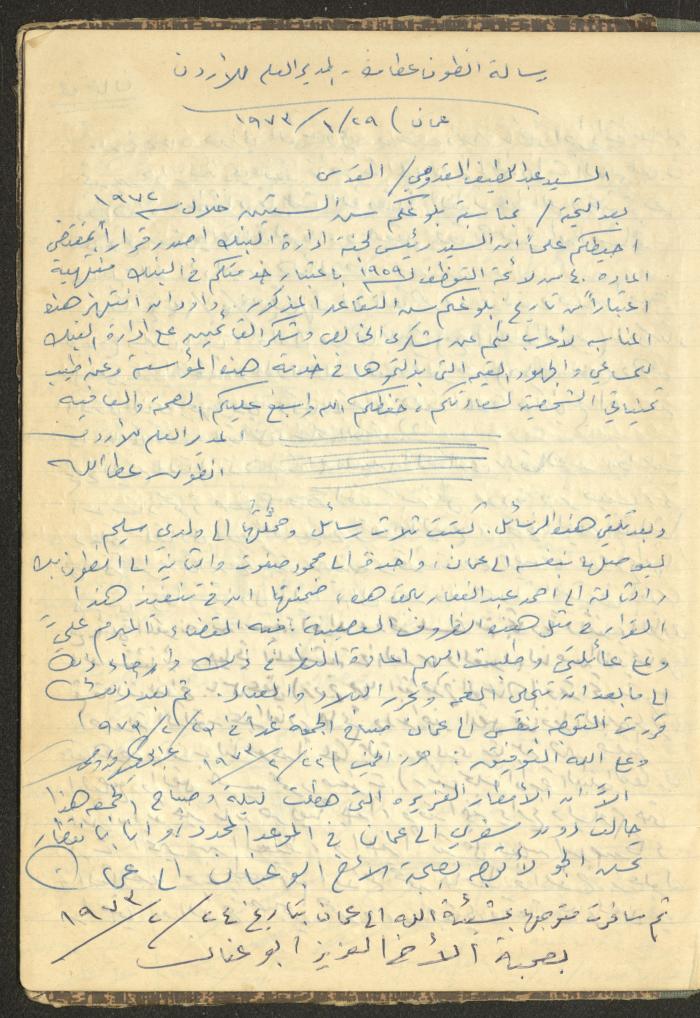 رسالة انطون عطا الله - المدير العام للأردن
عمان ) ٢٩ / ١ / ١٩٧٣
السيد عبد اللطيف القدومي / القدس
بعد التحية / بمناسبة بلوغكم سن الستين خلال سنة ١٩٧٢
احيطكم علماً ان السيد رئيس لجنة ادارة البنك اصدر قراراً بمقتضى
المادة ٤٠ من لائحة التوظف لسنة ١٩٥٩ باعتبار خدمتكم في البنك منتهية
اعتباراً من تاريخ بلوغكم سن التقاعد المذكور. واود ان انتهز هذه
المناسبة لأعرب لكم عن شكري الخالص وشكر القائمين على ادارة البنك
للمساعي والجهود القيمة التي بذلتموها في خدمة هذه المؤسسة وعن طيب
تمنياتي الشخصية لسعادتكم، حفظكم الله واسبغ عليكم الصحة والعافية
المدير العام للأردن
انطون عطا الله
وبعد تلقي هذه الرسائل، كتبت ثلاث رسائل وحملتها الى ولدي سليم
ليوصلها بنفسه الى عمان، واحدة الى محمود صفوت والثانية الى انطون بك
والثالثة الى احمد عبد الغفار بالقاهرة، ضمنتها ان في تنفيذ هذا
القرار في مثل هذه الظروف العصيبة فيه القضاء المبرم عليّ
وعلى عائلتي وطلبت اليهم اعادة النظر في ذلك وارجاء ذلك
الى ما بعد ان تنجلي الغمة وتحرر البلاد والعباد. ثم بعد ذلك
قررت التوجه بنفسي الى عمان صباح الجمعة غداً في ٢٣ / ٢ / ١٩٧٣
وعلى الله التوفيق. حرر الخميس ٢٢ / ٢ / ١٩٧٣
الا ان الأمطار الغزيرة التي هطلت ليلة وصباح الجمعة هذا
حالت دون سفري الى عمان في الموعد المحدد، وانا بانتظار
تحسن الجو لأتوجه بصحبة الأخ ابو عنان الى عمان
ثم سافرت متوجها بمشيئة الله الى عمان بتاريخ ٢٤ / ٢ / ١٩٧٣
بصحبة الأخ العزيز ابو عنان